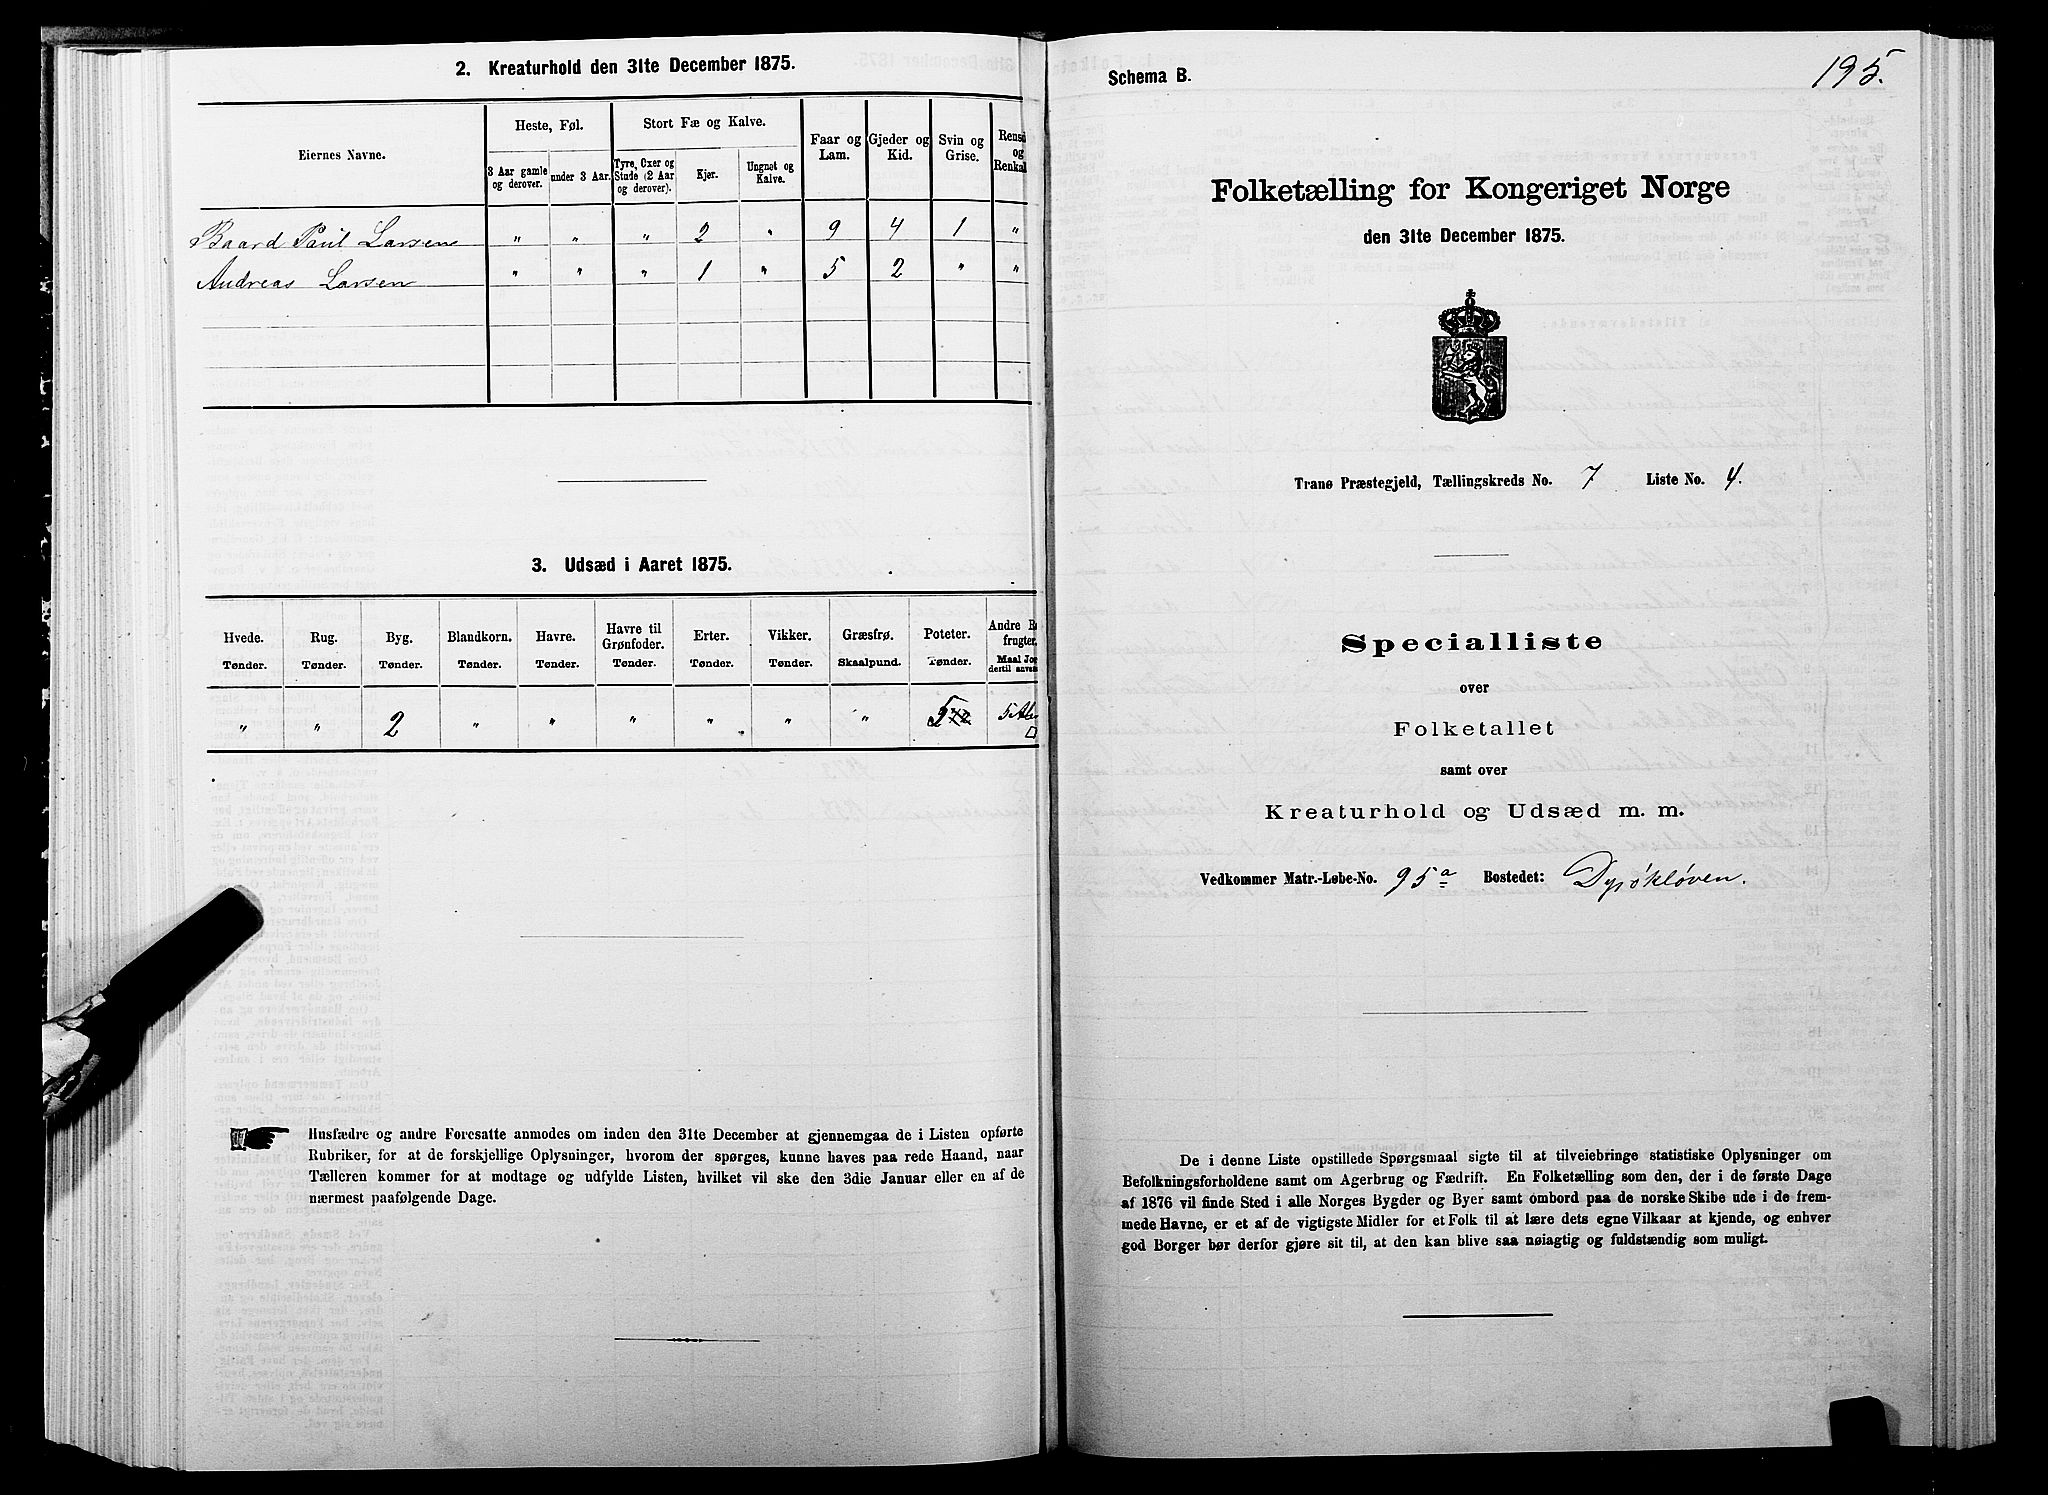 2. Kreaturhold den 31te December 1875.
Eiernes Navne. Heste, Føl. Stort Fæ og Kalve. Faar og Lam. Gjeder og Kid. Svin og Grise. Rensd og Renkal
3 Aar gamle og derover. under 3 Aar. Tyre, Oxer og Stude (2 Aar og derover). Kjør. Ungnøt og Kalve.
Baard Paul Larsen " " " 2 " 9 4 1 "
Andreas Larsen " " " 1 " 5 2 " "
3. Udsæd i Aaret 1875.
Hvede. Rug. Byg. Blandkorn. Havre. Havre til Grønfoder. Erter. Vikker. Græsfrø. Poteter. Andre R frugter.
Tønder. Tønder. Tønder. Tønder. Tønder. Tønder. Tønder. Tønder. Skaalpund. Tønder. Maal Jo dertil anven
" " 2 " " " " " " 5 5 Alen □
Husfædre og andre Foresatte anmodes om inden den 31te December at gjennemgaa de i Listen opførte
Rubriker, for at de forskjellige Oplysninger, hvorom der spørges, kunne haves paa rede Haand, naar
Tælleren kommer for at modtage og udfylde Listen, hvilket vil ske den 3die Januar eller en af de
nærmest paafølgende Dage.
Schema B.
195.
Folketælling for Kongeriget Norge
den 31te December 1875.
Tranø Præstegjeld, Tællingskreds No. 7 Liste No. 4.
Specialliste
over
Folketallet
samt over
Kreaturhold og Udsæd m. m.
Vedkommer Matr.-Løbe-No. 95a Bostedet: Dyrökløven.
De i denne Liste opstillede Spørgsmaal sigte til at tilveiebringe statistiske Oplysninger om
Befolkningsforholdene samt om Agerbrug og Fædrift. En Folketælling som den, der i de første Dage
af 1876 vil finde Sted i alle Norges Bygder og Byer samt ombord paa de norske Skibe ude i de frem-
mede Havne, er et af de vigtigste Midler for et Folk til at lære dets egne Vilkaar at kjende, og enhver
god Borger bør derfor gjøre sit til, at den kan blive saa nøiagtig og fuldstændig som muligt.